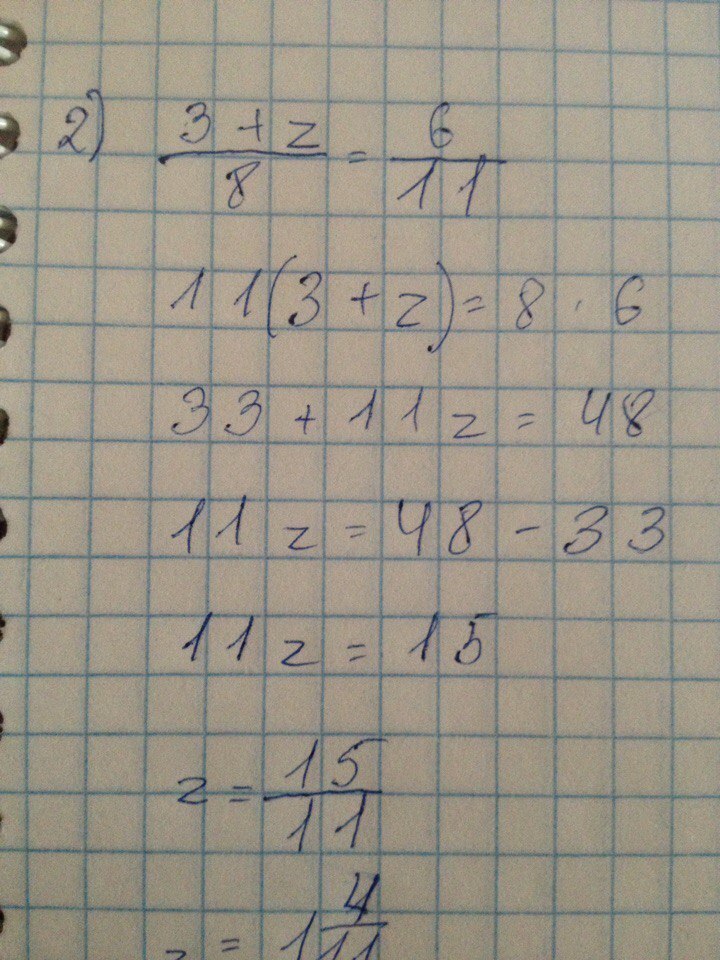 2) (3 + z)/8 = 6/11
11(3 + z) = 8 · 6
33 + 11z = 48
11z = 48 - 33
11z = 15
z = 15/11
z = 1 4/11